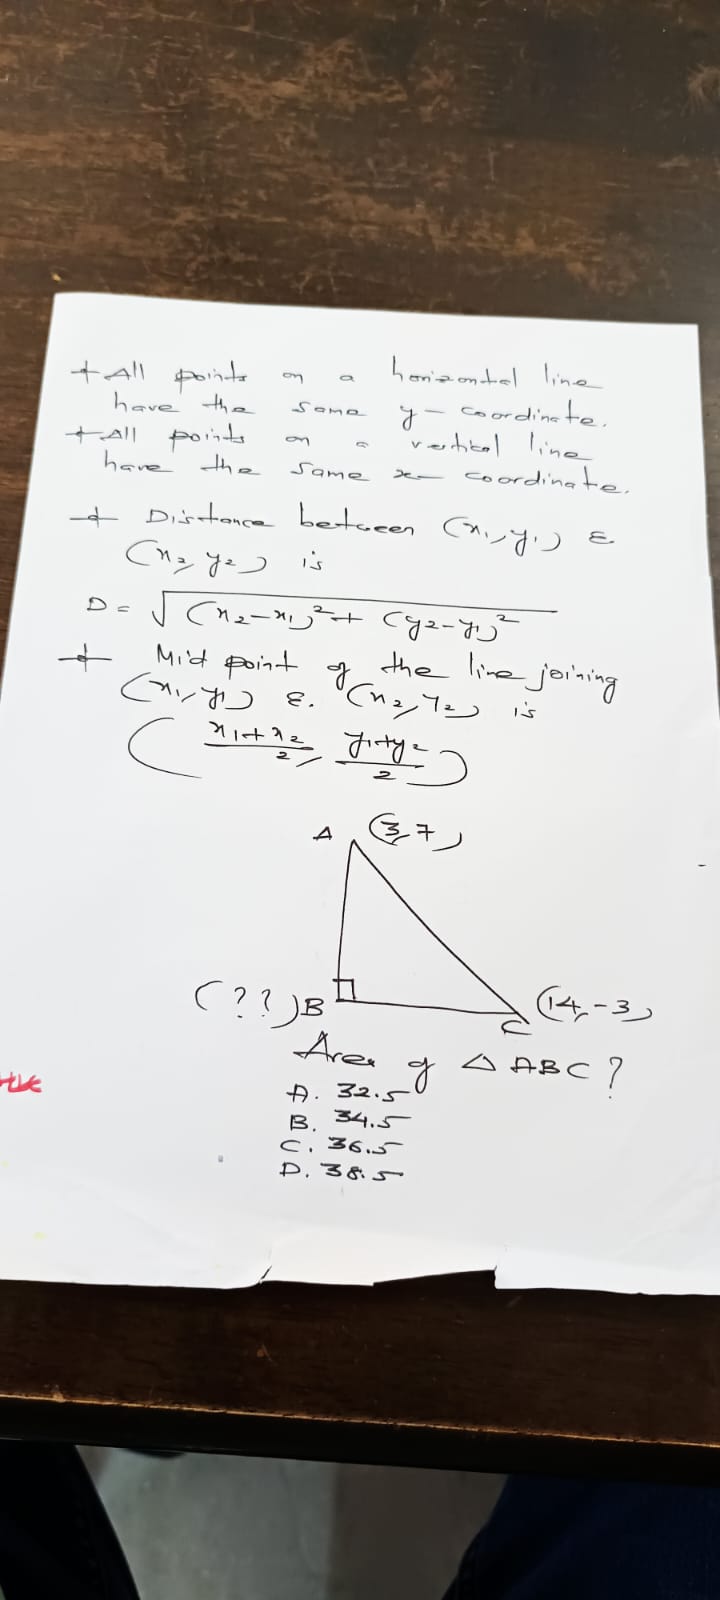 + All points on a horizontal line
have the same y- coordinate.
+ All points on a vertical line
have the same x- coordinate.
+ Distance between (x₁, y₁) &
(x₂, y₂) is
D = √(x₂-x₁)² + (y₂-y₁)²
+ Mid point of the line joining
(x₁, y₁) &. (x₂, y₂) is
(x₁+x₂/2, y₁+y₂/2)
A (3,7)
(??) B (14,-3)
C
Area of △ ABC?
A. 32.5
B. 34.5
C. 36.5
D. 38.5